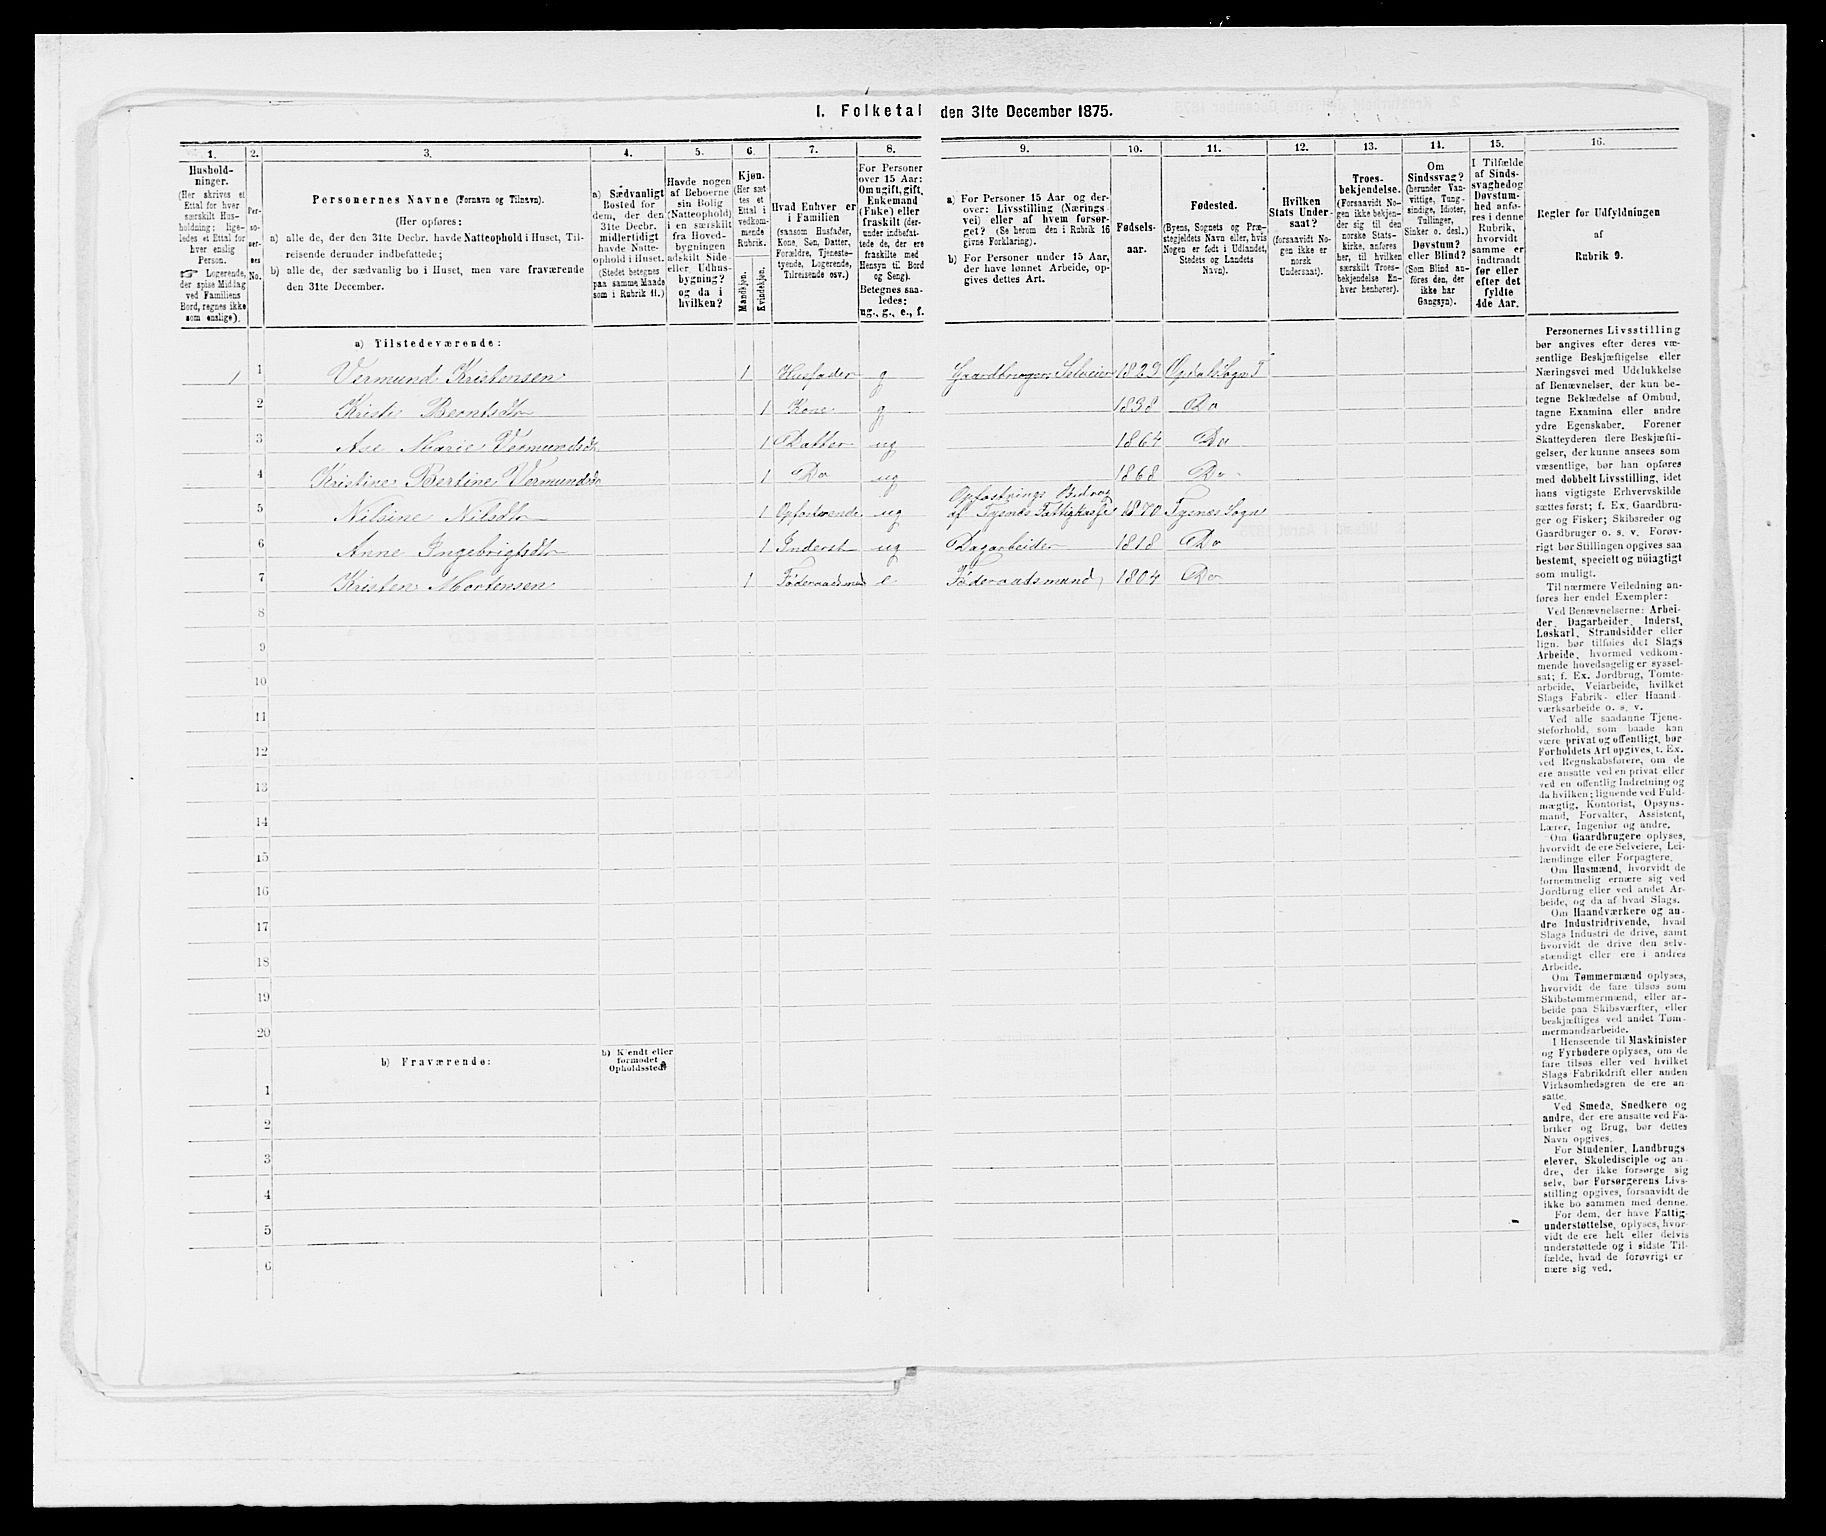 I. Folketal den 31te December 1875.
1. 2. 3. 4. 5. 6. 7. 8. 9. 10. 11. 12. 13. 14. 15. 16.
Hushold-
ninger.
(Her skrives et
Ettal for hver
særskilt Hus-
holdning; lige-
ledes et Ettal for
hver enslig
Person.
☞ Logerende,
der spise Midlag
ved Familiens
Bord, regnes ikke
som enslige).
Per-
so-
ner-
nes
No.
Personernes Navne (Fornavn og Tilnavn).
(Her opføres:
a) alle de, der den 31te Decbr. havde Natteophold i Huset, Til-
reisende derunder indbefattede;
b) alle de, der sædvanlig bo i Huset, men vare fraværende
den 31te December.
a) Sædvanligt
Bosted for
dem, der den
31te Decbr.
midlertidigt
havde Natte-
ophold i Huset.
(Stedet betegnes
paa samme Maade
som i Rubrik 11.)
Havde nogen
af Beboerne
sin Bolig
(Natteophold)
i en særskilt
fra Hoved-
bygningen
adskilt Side-
eller Udhus-
bygning?
og da i
hvilken?
Kjøn.
(Her sæt-
tes et
Ettal i
vedkom-
mende
Rubrik.
Mandkjøn.
Kvindekjøn.
Hvad Enhver er
i Familien
(saasom Husfader,
Kone, Søn, Datter,
Forældre, Tjeneste-
tyende, Logerende,
Tilreisende osv.)
For Personer
over 15 Aar:
Om ugift, gift,
Enkemand
(Enke) eller
fraskilt (der-
under indbefat-
tede de, der ere
fraskilte med
Hensyn til Bord
og Seng).
Betegnes saa-
ledes:
ug., g., e., f.
a) For Personer 15 Aar og der-
over: Livsstilling (Nærings
vei) eller af hvem forsør-
get? (Se herom den i Rubrik 16
givne Forklaring).
b) For Personer under 15 Aar,
der have lønnet Arbeide, op-
gives dettes Art.
Fødsels-
aar.
Fødested.
(Byens, Sognets og Præ-
stegjeldets Navn eller, hvis
Nogen er født i Udlandet,
Stedets og Landets
Navn).
Hvilken
Stats Under-
saat?
(forsaavidt No-
gen ikke er
norsk
Undersaat).
Troes-
bekjendelse.
(Forsaavidt No-
gen ikke bekjen-
der sig til den
norske Stats-
kirke, anføres
her, til hvilket
særskilt Troes-
bekjendelse En-
hver henhører).
Om
Sindssvag?
(herunder Van-
vittige, Tung-
sindige, Idioter,
Tullinger,
Sinker o. desl.)
Døvstum?
eller Blind?
(Som Blind an-
føres den, der
ikke har
Gangsyn).
I Tilfælde
af Sinds-
svaghed og
Døvstum-
hed anfø-
res i denne
Rubrik,
hvorvidt
samme er
indtraadt
før eller
efter det
fyldte
4de Aar.
Regler for Udfyldningen
af
Rubrik 9.
a) Tilstedeværende:
1 1 Vermund Kristensen 1 Husfader g Gaardbruger, Selveier 1829 Opdals Sogn T
2 Kristi Berntsdtr 1 Kone g 1838 Do
3 Ase Marie Vermundsdtr 1 Datter ug 1864 Do
4 Kristine Bertine Vermundsdtr 1 Do ug 1868 Do
5 Nilsine Nilsdtr 1 ug Opfostrings Bidrag
af Tysnes Fattigkasse 1870 Tysnes Sogn
6 Anne Ingebrigtsdtr 1 Inderst ug Dagarbeider 1818 Do
7 Kristen Mortensen 1 Føderaadsmand e Føderaadsmand 1804 Do
8
9
10
11
12
13
14
15
16
17
18
19
20
b) Fraværende:
b) Kjendt eller
formodet
Opholdssted
1
2
3
4
5
6
Personernes Livsstilling
bør angives efter deres væ-
sentlige Beskjæftigelse eller
Næringsvei med Udelukkelse
af Benævnelser, der kun be-
tegne Beklædelse af Ombud,
tagne Examina eller andre
ydre Egenskaber. Forener
Skatteyderen flere Beskjæfti-
gelser, der kunne ansees som
væsentlige, bør han opføres
med dobbelt Livsstilling, idet
hans vigtigste Erhvervskilde
sættes først; f. Ex. Gaardbru-
ger og Fisker; Skibsreder og
Gaardbruger o. s. v. Forøv-
rigt bør Stillingen opgives saa
bestemt, specielt og nöiagtigt
som muligt.
Til nærmere Veiledning an-
føres her endel Exempler:
Ved Benævnelserne: Arbei-
der, Dagarbeider, Inderst,
Løskarl, Strandsidder eller
lign. bør tilføies det Slags
Arbeide, hvormed vedkom-
mende hovedsagelig er syssel-
sat; f. Ex. Jordbrug, Tomte-
arbeide, Veiarbeide, hvilket
Slags Fabrik- eller Haand-
værksarbeide o. s. v.
Ved alle saadanne Tjene-
steforhold, som baade kan
være privat og offentligt, bør
Forholdets Art opgives, t. Ex.
ved Regnskabsførere, om de
ere ansatte ved en privat eller
ved en offentlig Indretning og
da hvilken; lignende ved Fuld-
mægtig, Kontorist, Opsyns-
mand, Forvalter, Assistent,
Lærer, Ingeniør og andre.
Om Gaardbrugere oplyses,
hvorvidt de ere Selveiere, Lei-
lændinge eller Forpagtere.
Om Husmænd, hvorvidt de
fornemmelig ernære sig ved
Jordbrug eller ved andet Ar-
beide, og da af hvad Slags.
Om Haandværkere og an-
dre Industridrivende, hvad
Slags Industri de drive, samt
hvorvidt de drive den selv-
stændigt eller ere i andres
Arbeide.
Om Tømmermænd oplyses,
hvorvidt de fare tilsøs som
Skibstømmermænd, eller ar-
beide paa Skibsværfter, eller
beskjæftiges ved andet Tøm-
mermandsarbeide.
I Henseende til Maskinister
og Fyrbødere oplyses, om de
fare tilsøs eller ved hvilket
Slags Fabrikdrift eller anden
Virksomhedsgren de ere an-
satte.
Ved Smede, Snedkere og
andre, der ere ansatte ved Fa-
briker og Brug, bør dettes
Navn opgives.
For Studenter, Landbrugs
elever, Skoledisciple og an-
dre, der ikke forsørge sig
selv, bør Forsørgerens Livs-
stilling opgives, forsaavidt de
ikke bo sammen med denne.
For dem, der have Fattig-
understøttelse, oplyses, hvor-
vidt de ere helt eller delvis
understøttede og i sidste Til-
fælde, hvad de forøvrigt er-
nære sig ved.